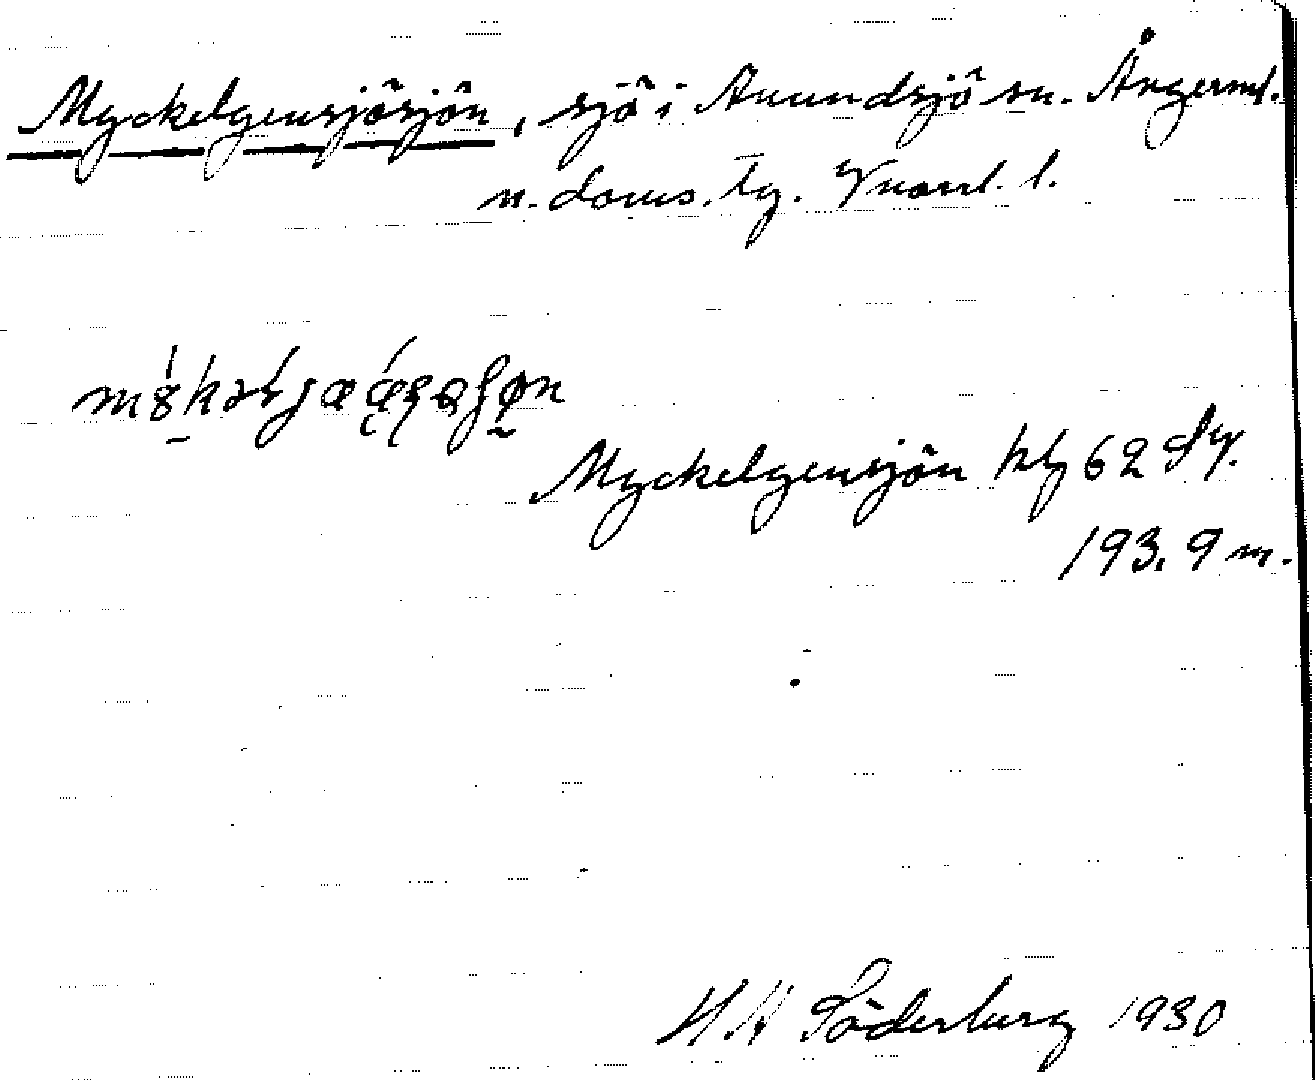 Myckelgensjösjön, sjö i Anundsjö sn. Ångerml.
n. doms. tg. Vnorrl. l.
Myckelgensjön hbl 62 Sv.
193.9 m.
H H Söderberg 1930